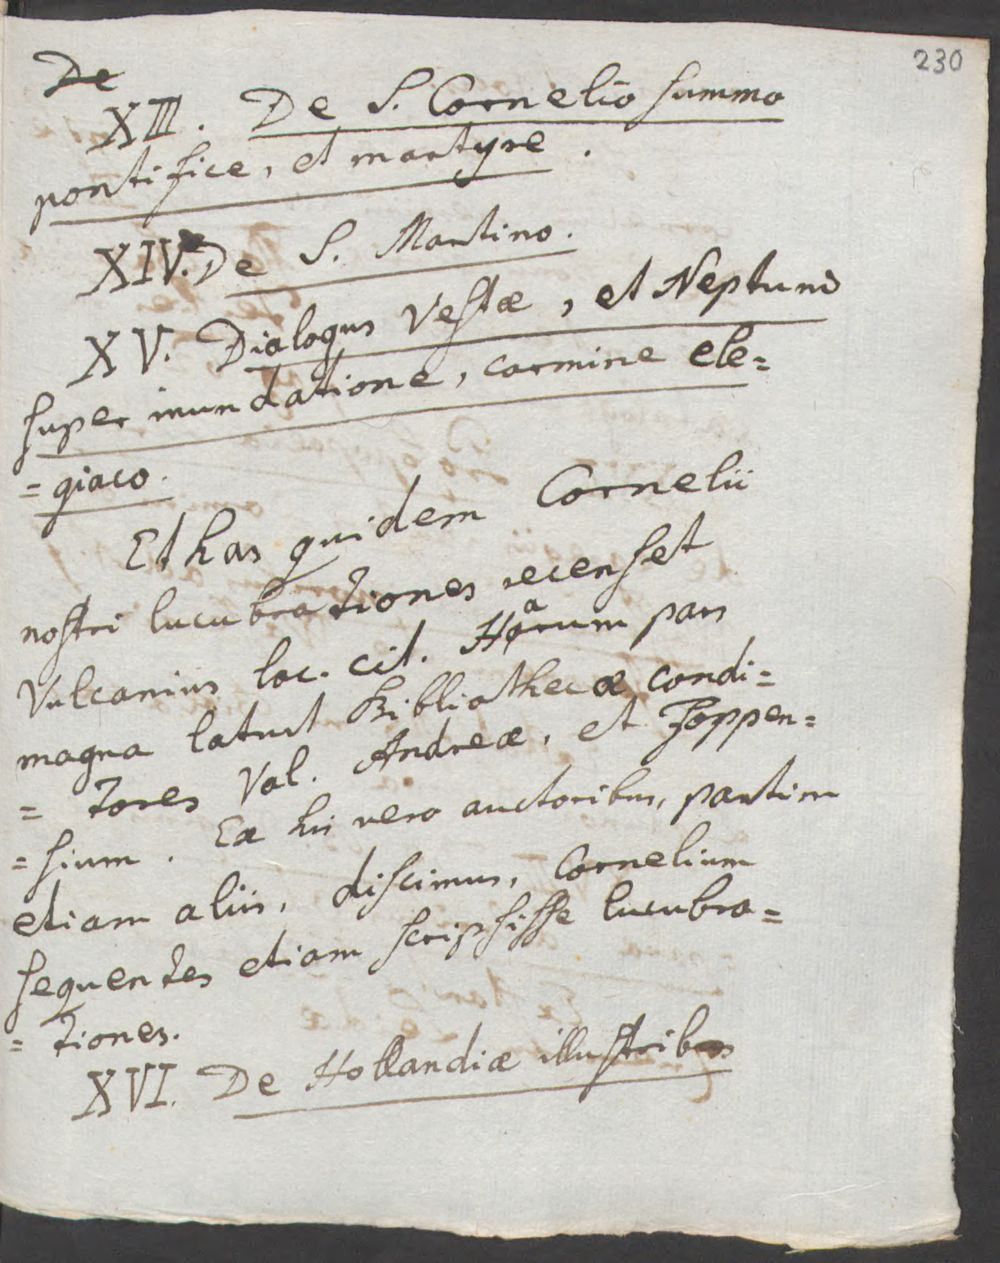 230
De
XIII. De S. Cornelio summo
pontifice, et martyre.
XIV. De S. Martino.
XV. Dialogus Vestæ, et Neptuni
super inundatione, carmine ele=
=giaco.
Et has quidem Cornelii
nostri lucubrationes recenset
Vulcanius loc. cit. Harum pars
magna latuit Bibliothecæ condi=
=tores Val. Andreæ, et Foppen=
=sium. Ex his vero auctoribus, partim
etiam aliis, discimus, Cornelium
sequentes etiam scripsisse lucubra=
=tiones.
XVI. De Hollandiæ illustribus